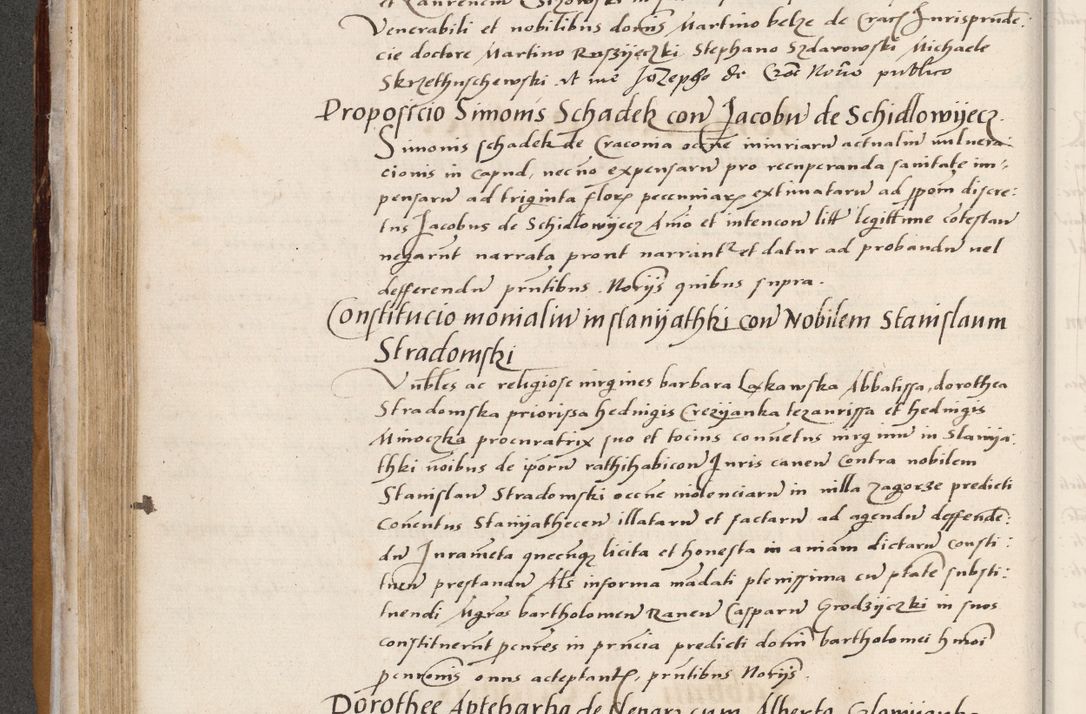 Venerabili et nobilibus domīs Martino belze de Crac Jurisprudē:
cie doctore Martino Ruszÿeczki Stephano Szdarowski Michaele
Skrzethuschewski et me Jozepho de Croē Norio publico
Proposicio Simonis Schadek con Jacobū de Schidlowÿecz.
Simonis schadek de Cracovia occne iniuriarū actualiū vulnera:
cionis in capud, necno expensarū pro recuperanda sanitate im:
pensarū ad triginta flor pecuniar extimatarū ad ppōm discre:
tus Jacobus de Schidlowÿecz Aīo et intencon litt legittime cotestan
negarūt narrata prout narrant et datur ad probandū vel
defferendū pntibus Norijs quibus supra.
Constitucio monialiū in stanijathki con Nobilem Stanislaum
Stradomski
Vnbles ac religiose virgines barbara Laxkawska Abbatissa, dorothea
Stradomska priorissa hedvigis Crezijanka tezaurissa et hedvigis
Minoczka procuratrix suo et tocius convētus virginū in Stanija:
thki noibus de ipōrū rathihabicon Juris canen Contra nobilem
Stanislaū Stradomski occne violenciarū in villa zagorze predicti
Conventus Stanijathecen illatarū et factarū ad agendū deffendē:
dū Jurameta quecūq licita et honesta in aniam dictarū consti:
tuen prestandū Als in forma mādati plenissima cū ptate substi:
tuendi Mgros bartholomeū Ranen Casparū Grodzijczki in suos
constituerūt pcures in pnicia predicti domī bartholomei hmoī
pcuronis onus acceptant, pntibus Norijs.
Dorothee Aptekarka de